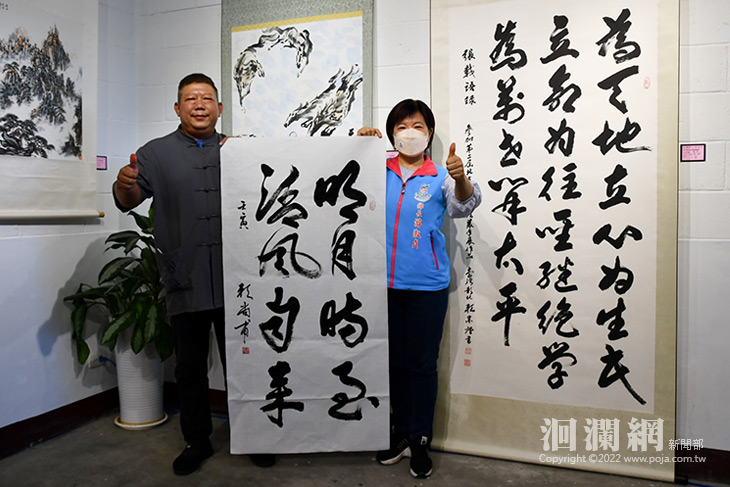 為天地立心為生民
立命為往聖繼絕學
為萬世開太平
張載語錄
明月時至
清風自來
壬寅
洄瀾網 新聞部
Copyright ©2022 www.poja.com.tw